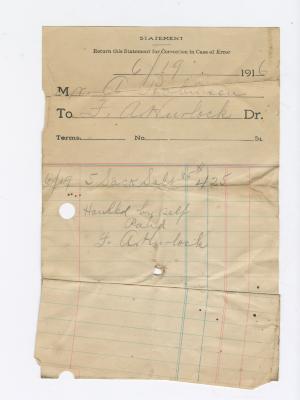 STATEMENT
Return this Statement for Correction in Case of Error
6/19 1916
Mr. A
To F. A. Hurlock Dr.
Terms No. St.
6/19 5 Sack Salt 85 4/25
Hauled by self
Paid
F. A. Hurlock